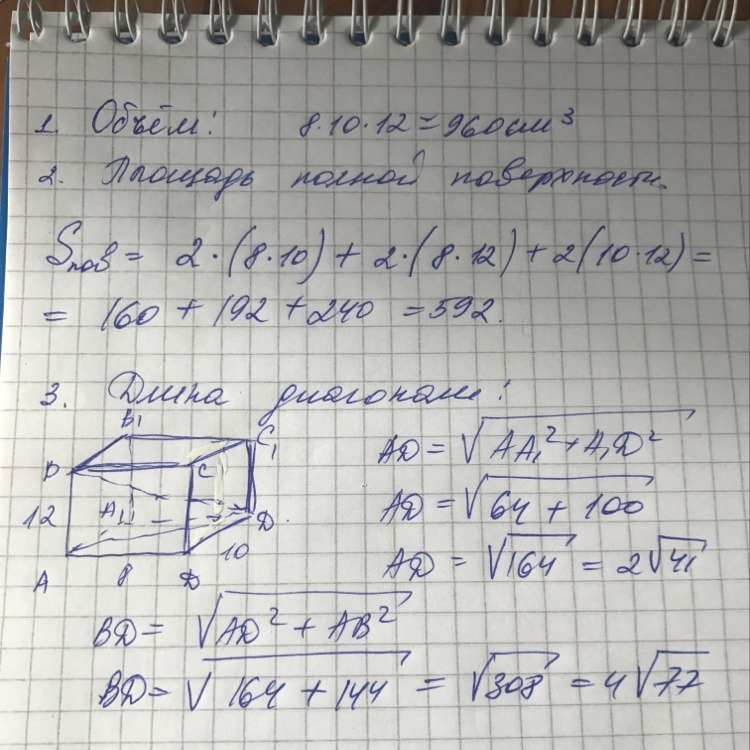 1. Объём: 8·10·12=960см³
2. Площадь полной поверхности.
Sпов = 2·(8·10)+2·(8·12)+2(10·12)=
= 160+192+240=592.
3. Длина диагонали:
B₁
C₁
B
C
12
A₁
D
10
A
8
D
AD=√AA₁²+A₁D²
AD=√64+100
AD=√164=2√41
BD=√AD²+AB²
BD=√164+144=√308=4√77